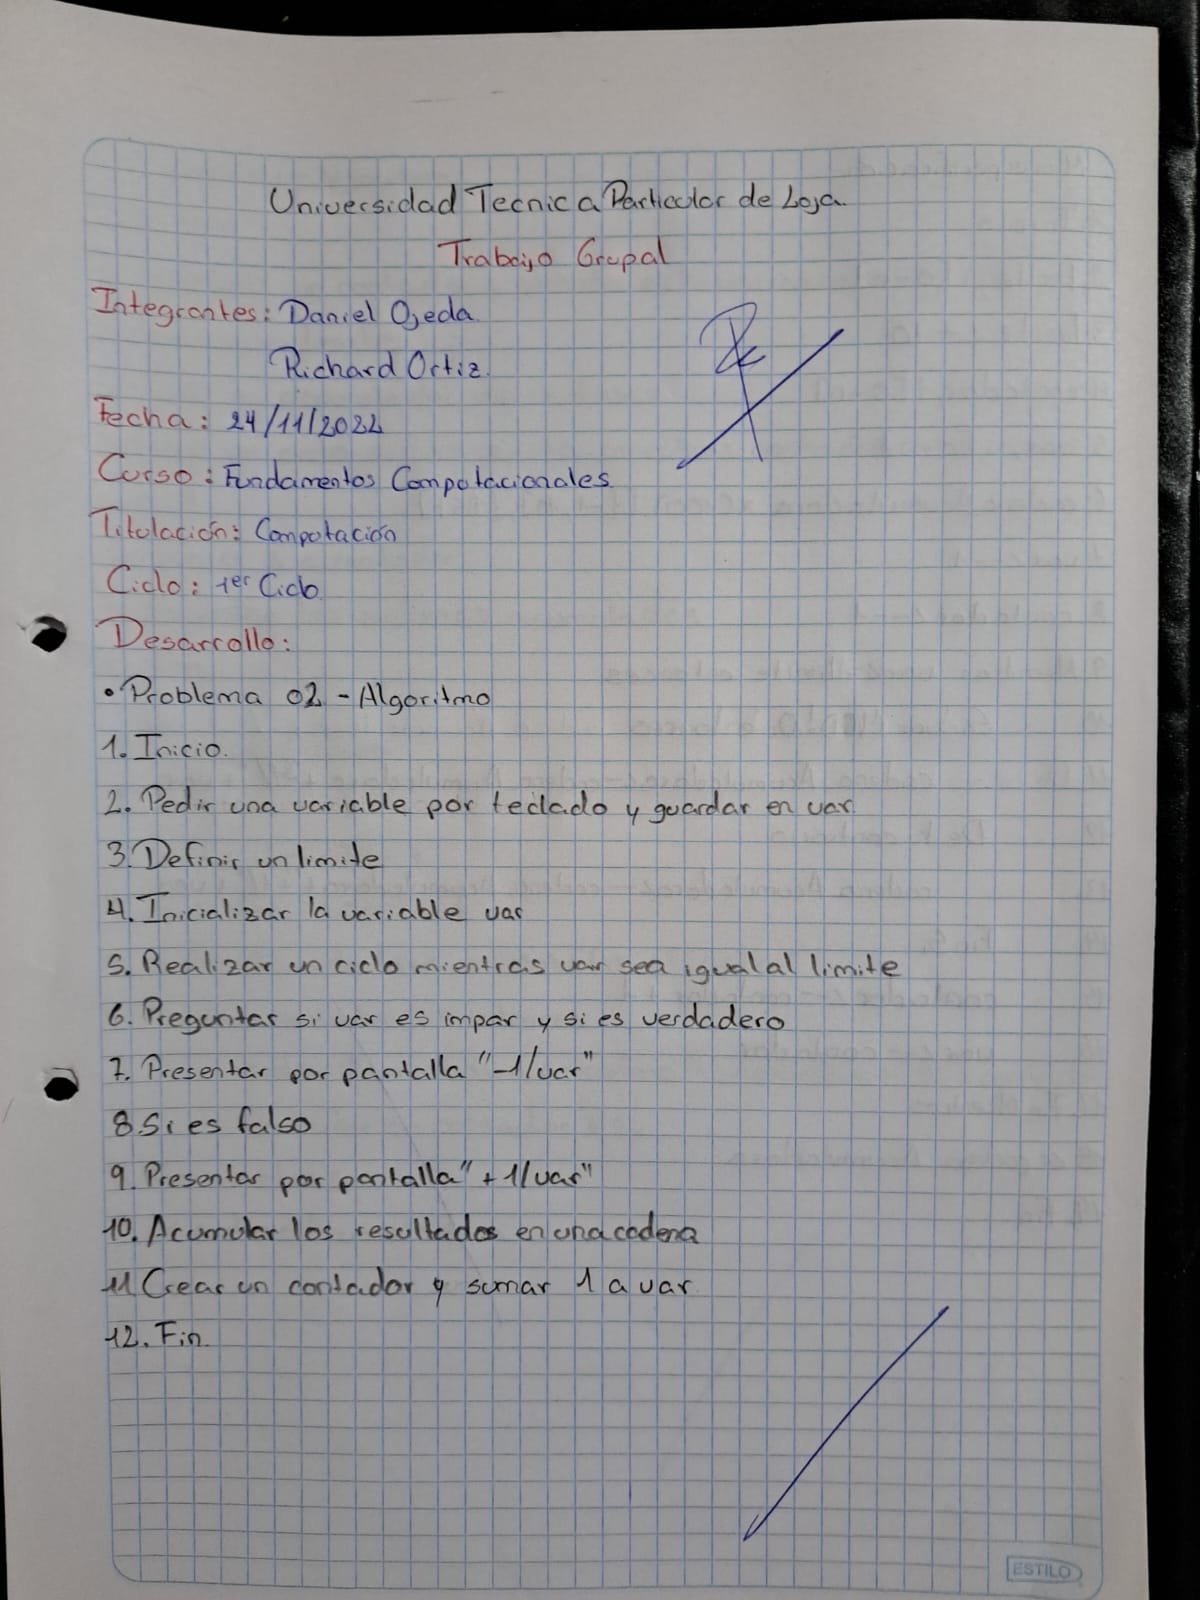 Universidad Tecnica Particular de Loja.
Trabajo Grupal
Integrantes: Daniel Ojeda
Richard Ortiz.
Fecha: 24/11/2022
Curso: Fundamentos Computacionales.
Titulación: Computación
Ciclo: 1er Ciclo
Desarrollo:
• Problema 02 - Algoritmo
1. Inicio.
2. Pedir una variable por teclado y guardar en var.
3. Definir un limite
4. Inicializar la variable var
5. Realizar un ciclo mientras var sea igual al limite
6. Preguntar si var es impar y si es verdadero
7. Presentar por pantalla "-1/var"
8. Si es falso
9. Presentar por pantalla "+ 1/var"
10. Acumular los resultados en una cadena
11 Crear un contador y sumar 1 a var
12. Fin.
ESTILO